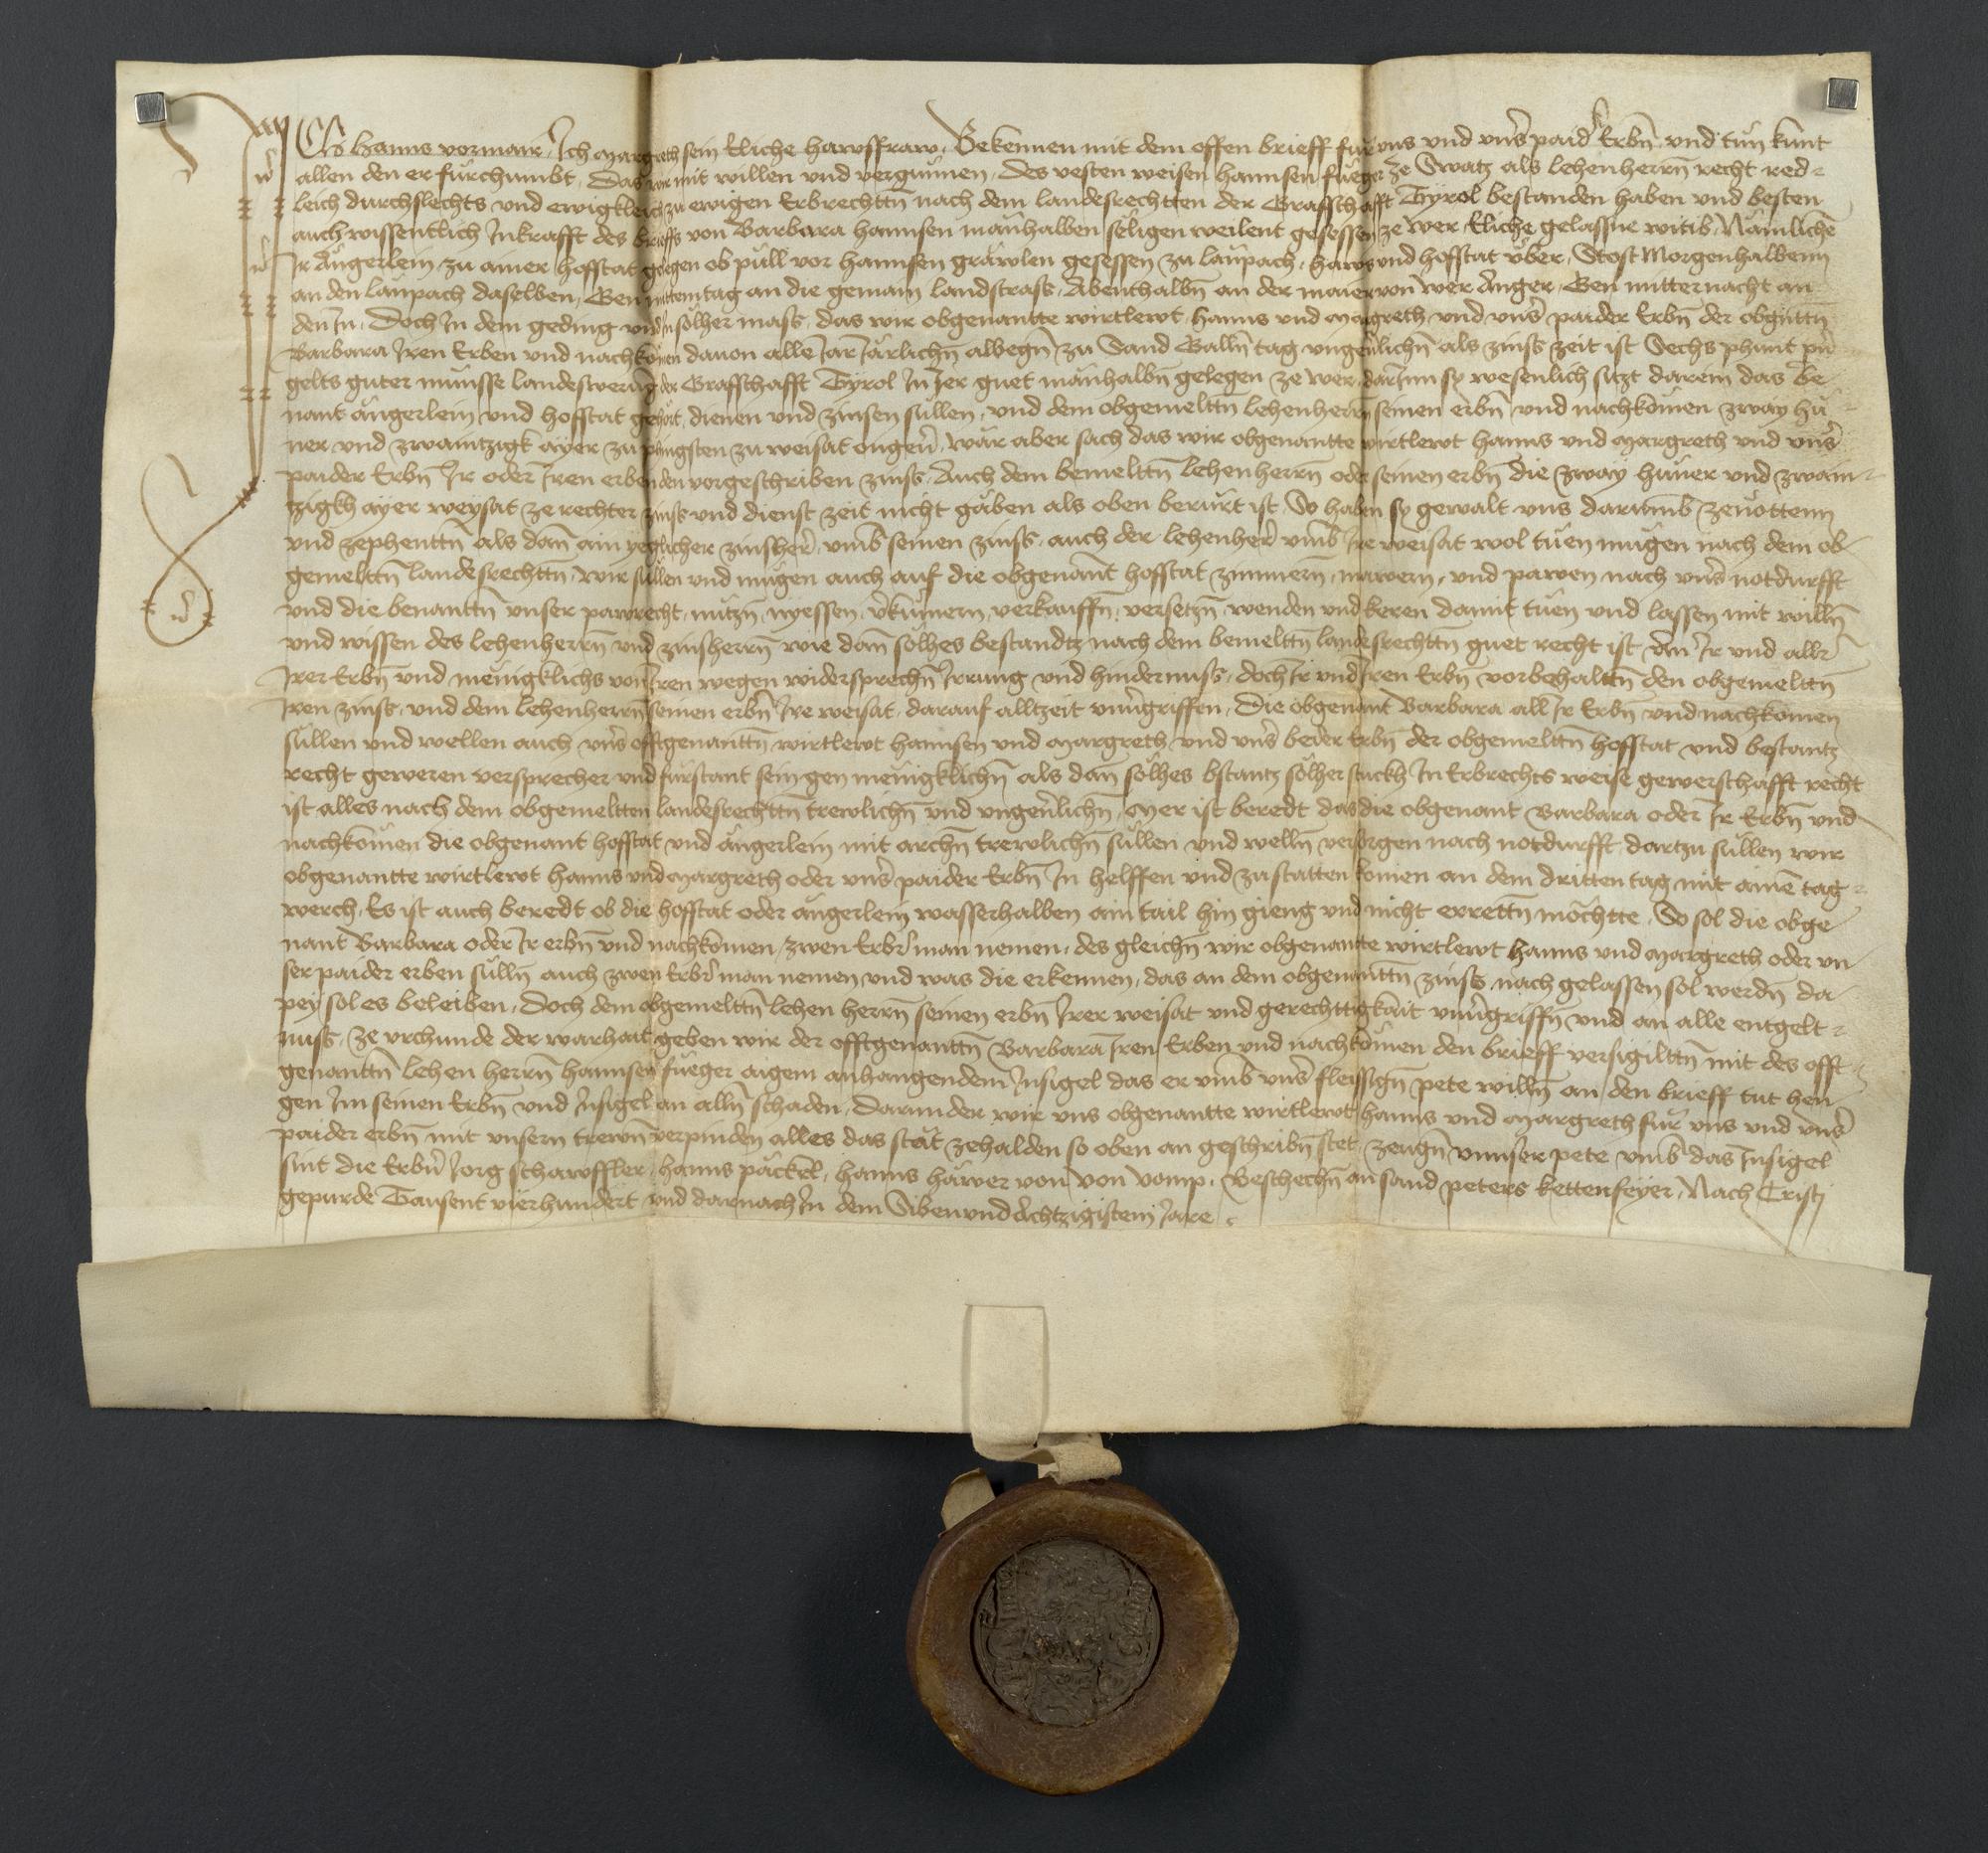 Ich Hanns vormair, Ich Margreth sein Eliche hawsfraw, Bekennen mit dem offen brieff fur uns und uns̄ paid Erbn̄ und tun kunt
allen den er furchumbt, Das wir mit willen und vergunnen, des vesten weisen hannsen fueger ze Swatz als lehenherrn̄ recht red-
leich durchslechts und ewigkleich zu ewigen Erbrechttn̄ nach dem landesrechtten der Graffschafft Tyrol bestanden haben und besten
auch wissentlich Inkrafft des brieffs von Barbara hannsen mauhalben seligen weilent gesessen ze wer Eliche gelassne witib, Namlichē
Ir Angerlein zu ainer hofstat gelegen ob pull vor hannsen grawlen gesessen zu laupach, haws und hofstat uber, Stost Morgenhalbenn
an den laupach daselben, Gen mittemtag an die gemain landstrass, Abenthalbn̄ an der maier von wer Anger, Gen mitternacht an
den In, Doch In dem geding und In solher mass, das wir obgenantte wirtlewt hanns und Margreth und uns̄ paider Erbn̄ der obgn̄ttn̄
Barbara Iren Erben und nachkomen davon alle Iar Iarlichn̄ albegn̄ zu Sand Galln̄ tag ungeūlichn̄ als zinss zeit ist Sechs phunt pn̄
gelts guter munsse landeswerung der Graffschafft Tyrol In Ier guet mauhalbn̄ gelegen ze wer, darInn sy wesenlich sitzt darein das be-
nant angerlein und hofstat gehort, dienen und zinsen sullen, und dem obgemelttn̄ lehenherrn̄ seinen erbn̄ und nachkomen zway hu-
ner und zwaintzigk ayer zu phingsten zu weisat ongeūd, war aber sach das wir obgenantte wirtlewt hanns und Margreth und uns̄
paider Erbn̄ Ir oder Iren erben den vorgeschriben zinss, Auch dem bemelttn̄ lehenherrn̄ oder seinen erbn̄ die zway huner und zwain-
tzigkh ayer weysat ze rechter zinss und dienst zeit nicht gaben als oben berurt ist, So haben sy gewalt uns darumb zenottenn
und zephenttn̄ als dan̄ ain yeglicher zinsher̄, umb seinen zinss, auch der lehenher̄ umb Ire weisat wol tuen mugen nach dem ob-
gemelttn̄ landesrechttn̄, wir sullen und mugen auch auf die obgenant hofstat zimmern, mawern, und pawen nach uns̄ notdurfft
und die benanttn̄ unser pawrecht, nutzn̄, nyessen, v̄kumern, verkauffn̄, versetzn̄, wenden und keren damit tuen und lassen mit willn̄
und wissen des lehenherrn̄ und zinsherrn̄ wie dan̄ solhes bestandtz nach dem bemelttn̄ landesrechttn̄ guet recht ist An Ir und aller
Irer Erbn̄ und menigklichs von Iren wegen widersprechn̄ Irrung und hindernuss, doch Ir und Iren Erbn̄ vorbehalttn̄ den obgemelttn̄
Iren zinss, und dem lehenherrn̄ seinen erbn̄ Ire weisat, darauf alltzeit unūgriffen, Die obgenant Barbara all Ir Erbn̄ und nachkomen
sullen und wellen auch uns̄ offtgenanttn̄ wirtlewt hannsen und Margreth und uns̄ beder Erbn̄ der obgemelttn̄ hofstat und bestantz
recht geweren versprecher und furstant sein gen menigklichn̄ als dan̄ solhes bstantz solher stuckh In Erbrechts weise gewerschafft recht
ist alles nach dem obgemeltten landesrechttn̄ trewlichn̄ und ungeūlichn̄, Mer ist beredt das die obgenant Barbara oder Ir Erbn̄ und
nachkomen die obgenant hofstat und angerlein mit archn̄ trewlichn̄ sullen und welln̄ versorgen nach notdurfft, dartzu sullen wir
obgenantte wirtlewt hanns und Margreth oder uns̄ paider Erbn̄ In helffen und zu statten komen an dem dritten tag mit ainē tag-
werch, Es ist auch beredt ob die hofstat oder angerlein wasserhalben ain tail hin gieng und nicht errettn̄ mochtte, So sol die obge-
nant Barbara oder Ir erbn̄ und nachkomen, zwen Erbr̄ man nemen, des gleichn̄ wir obgenantte wirtlewt hanns und Margreth oder un-
ser paider erben sulln̄ auch zwen Erbr̄ man nemen und was die erkennen, das an dem obgenanttn̄ zinss nach gelassen sol werdn̄ da-
pey sol es beleiben, Doch dem obgemelttn̄ lehen herrn̄ seinen erbn̄ Irer weisat und gerechttigkait unūgriffn̄ und an alle entgelt-
nuss, Ze urchunde der warhait geben wir der offtgenanttn̄ Barbara Iren Erben und nachkomen den brieff versigilttn̄ mit des offt-
genanttn̄ lehen herrn̄ hannsen fueger aigem anhangendem Insigel das er umb uns̄ fleissign̄ pete willn̄ an den brieff tut hen-
gen Im seinen Erbn̄ und Insigel an alln̄ schaden, darunder wir uns obgenantte wirtlewt hanns und Margreth fur uns und uns̄
paider erbn̄ mit unsern trewn̄ verpinden alles das stat zehalden so oben an geschribn̄ stet, zeugn̄ unnser pete umb das Insigel
sint die Erbn̄ Jorg schawffler, hanns packel, hanns hawer von von vomp, Beschechn̄ an sand peters kettenfeyer, Nach Cristj
gepurde Tausent vierhundert und darnach In dem Siben und Achtzigistem Jare